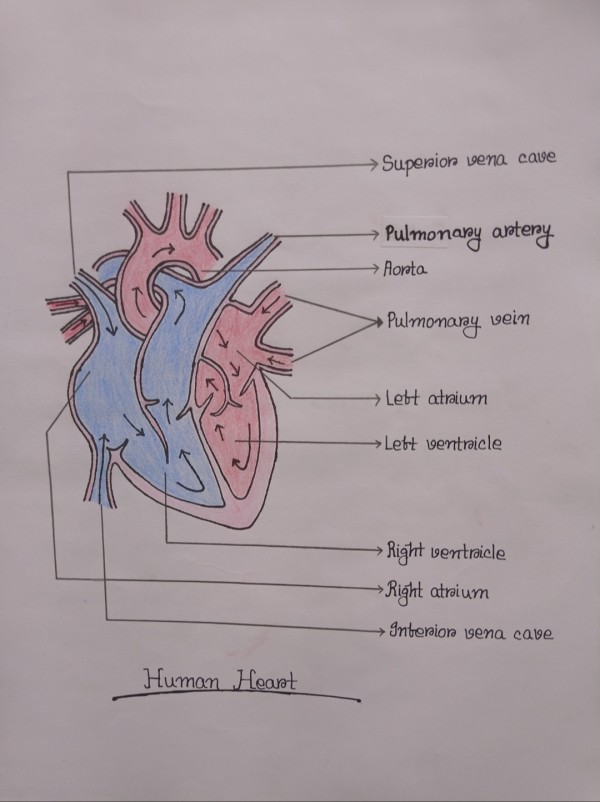 Superior vena cave
Pulmonary artery
Aorta
Pulmonary vein
Left atrium
Left ventricle
Right ventricle
Right atrium
Interior vena cave
Human Heart